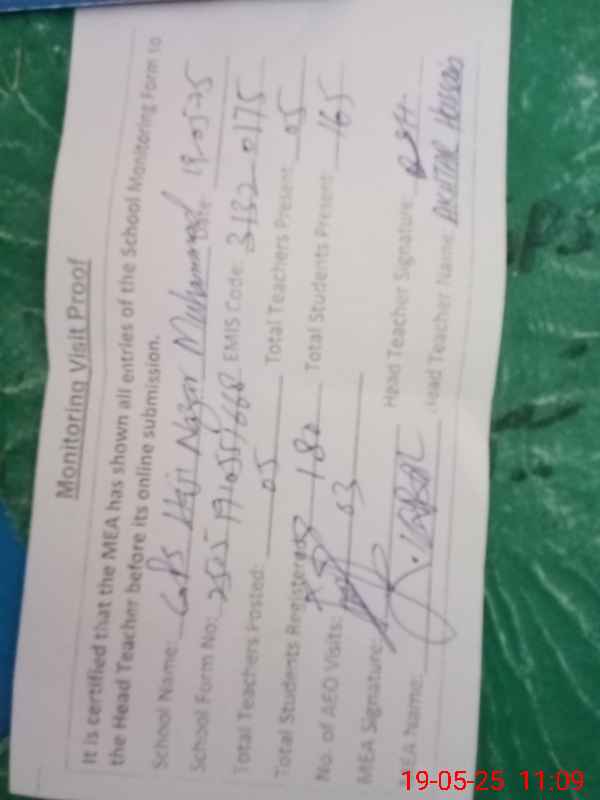 Monitoring Visit Proof
It is certified that the MEA has shown all entries of the School Monitoring Form to
the Head Teacher before its online submission.
School Name: GPS Haji Nazar Muhammad Date: 19-05-25
School Form No: EMIS Code: 31320175
Total Teachers Posted: 05 Total Teachers Present: 05
Total Students Registered: 182 Total Students Present: 165
No. of AEO Visits: 03
MEA Signature: Head Teacher Signature:
MEA Name: Head Teacher Name: AKHTAR Hussain
19-05-25 11:09